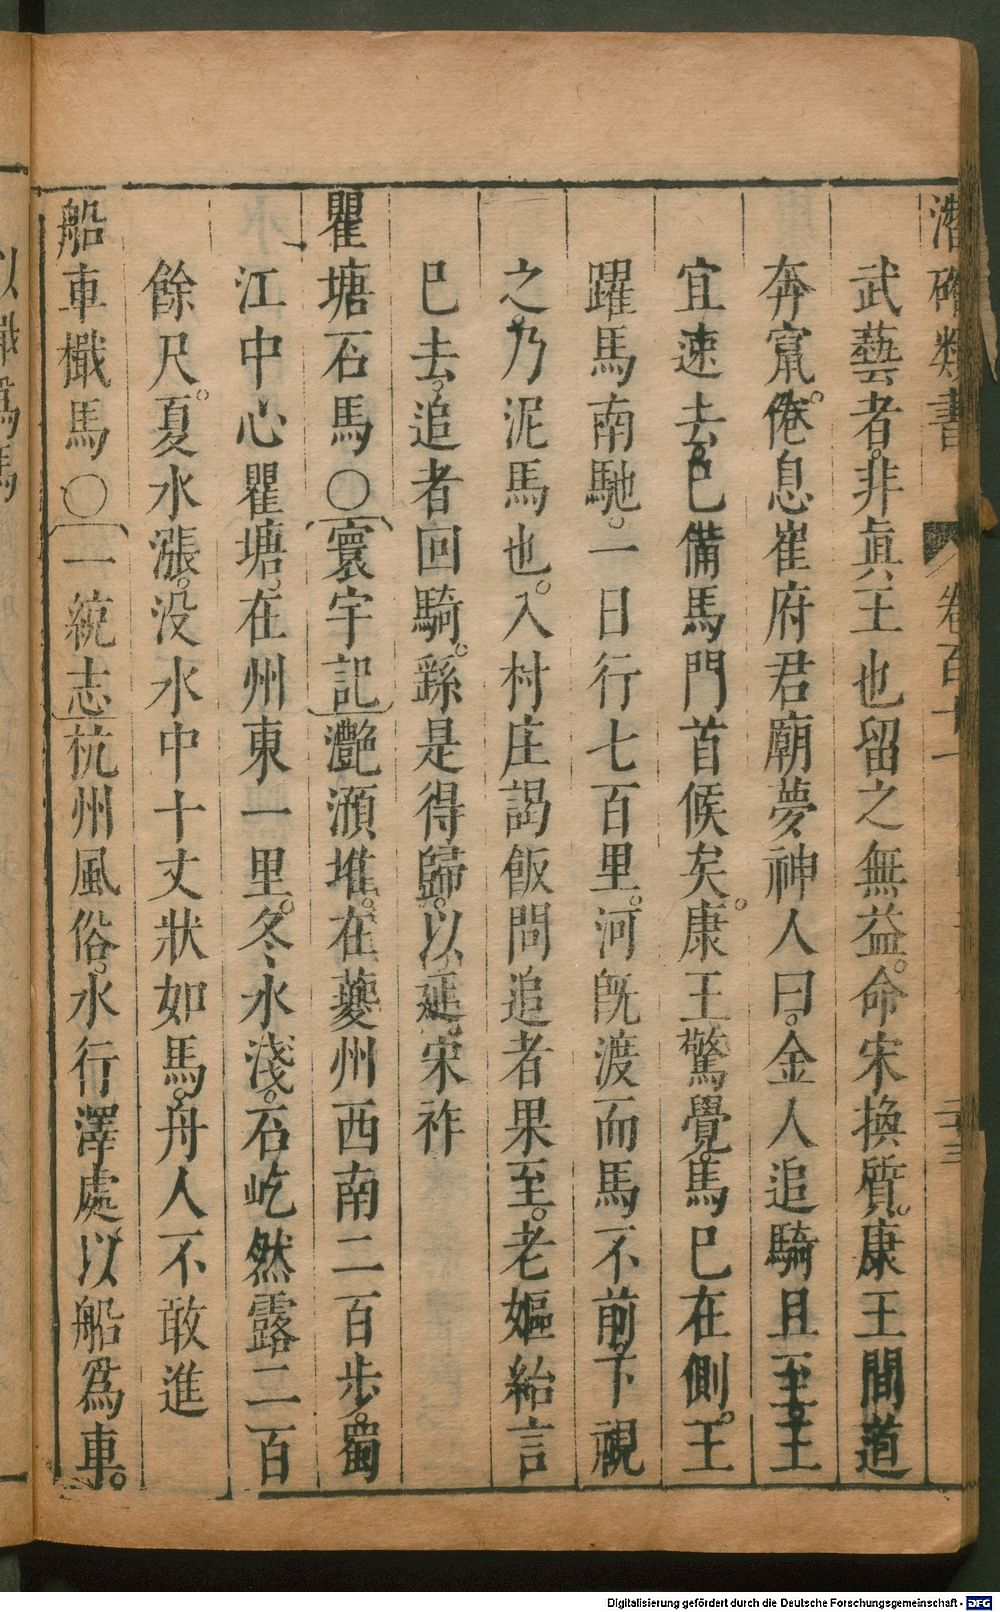 潛確類書 卷百十一 二十三
武藝者。非眞王也留之無益。命宋換質。康王間道
奔竄。倦息崔府君廟夢神人曰。金人追騎且至王
宜速去。已備馬門首候矣。康王驚覺。馬已在側。王
躍馬南馳。一日行七百里。河旣渡而馬不前下視
之。乃泥馬也。入村庄謁飯問追者果至。老嫗紿言
已去。追者回騎。繇是得歸。以延宋祚
瞿塘石馬〇〔寰宇記〕灧澦堆。在夔州西南二百步。蜀
江中心瞿塘。在州東一里。冬水淺。石屹然露二百
餘尺。夏水漲。没水中十丈狀如馬。舟人不敢進
船車檝馬〇〔一統志〕杭州風俗。水行澤處。以船爲車。
以檝爲馬
Digitalisierung gefördert durch die Deutsche Forschungsgemeinschaft - DFG